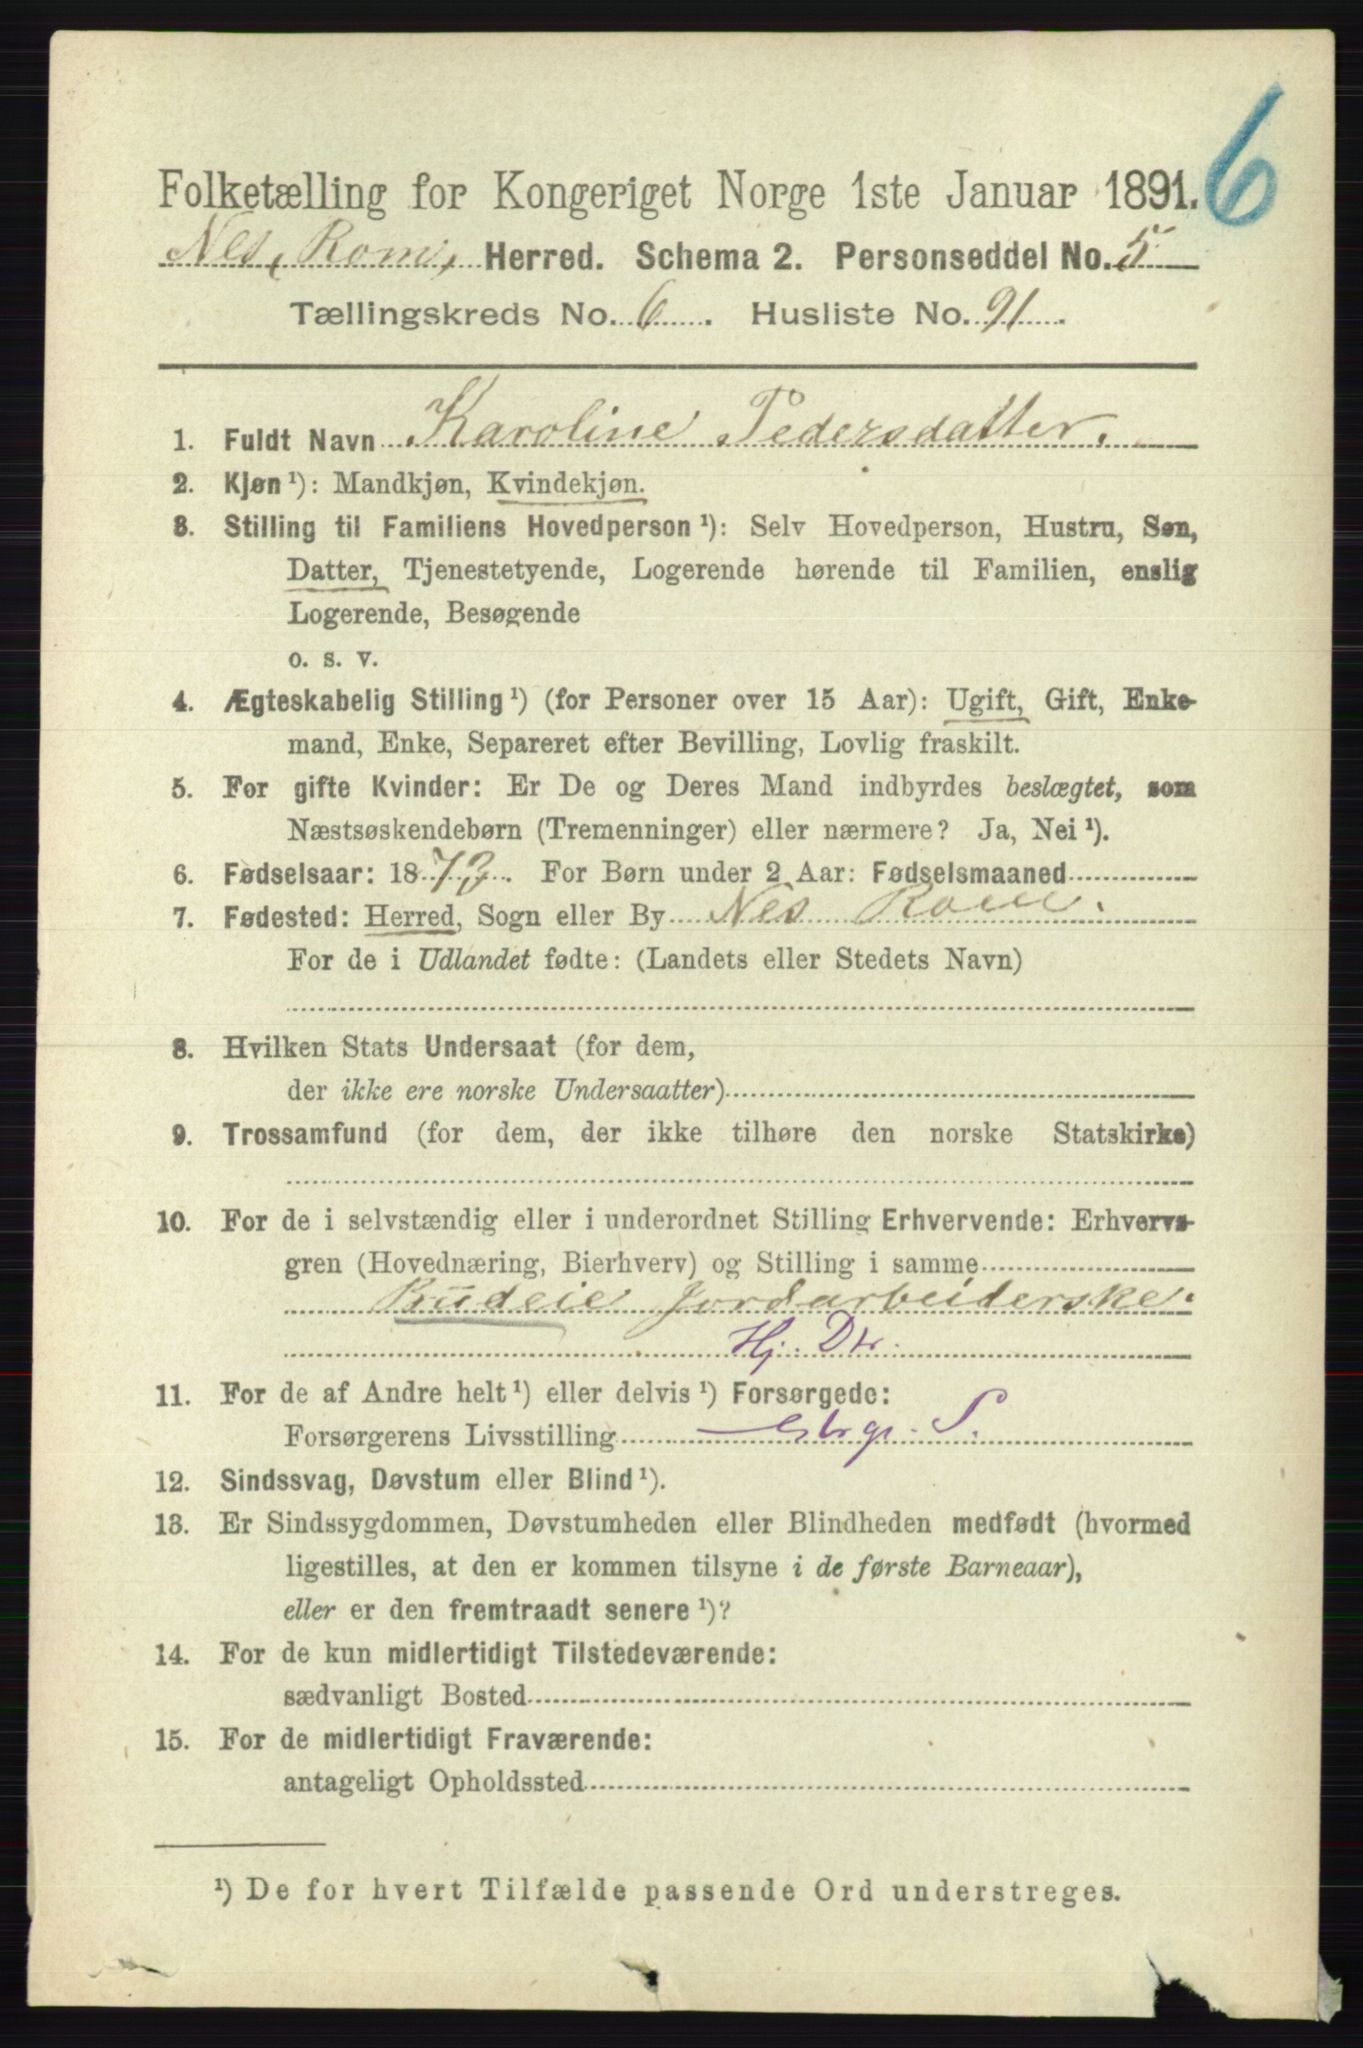 6
Folketælling for Kongeriget Norge 1ste Januar 1891.
Nes, Rom, Herred. Schema 2. Personseddel No. 5
Tællingskreds No. 6. Husliste No. 91.
1. Fuldt Navn Karoline Pedersdatter.
2. Kjøn ¹): Mandkjøn, Kvindekjøn.
3. Stilling til Familiens Hovedperson ¹): Selv Hovedperson, Hustru, Søn,
Datter, Tjenestetyende, Logerende hørende til Familien, enslig
Logerende, Besøgende
o. s. v.
4. Ægteskabelig Stilling ¹) (for Personer over 15 Aar): Ugift, Gift, Enke-
mand, Enke, Separeret efter Bevilling, Lovlig fraskilt.
5. For gifte Kvinder: Er De og Deres Mand indbyrdes beslægtet, som
Næstsøskendebørn (Tremenninger) eller nærmere? Ja, Nei ¹).
6. Fødselsaar: 1873. For Børn under 2 Aar: Fødselsmaaned
7. Fødested: Herred, Sogn eller By Nes Rom.
For de i Udlandet fødte: (Landets eller Stedets Navn)
8. Hvilken Stats Undersaat (for dem,
der ikke ere norske Undersaatter)
9. Trossamfund (for dem, der ikke tilhøre den norske Statskirke)
10. For de i selvstændig eller i underordnet Stilling Erhvervende: Erhvervs-
gren (Hovednæring, Bierhverv) og Stilling i samme
Budeie Jordarbeiderske.
Hj. Dtr.
11. For de af Andre helt ¹) eller delvis ¹) Forsørgede:
Forsørgerens Livsstilling S.
12. Sindssvag, Døvstum eller Blind ¹).
13. Er Sindssygdommen, Døvstumheden eller Blindheden medfødt (hvormed
ligestilles, at den er kommen tilsyne i de første Barneaar),
eller er den fremtraadt senere ¹)?
14. For de kun midlertidigt Tilstedeværende:
sædvanligt Bosted
15. For de midlertidigt Fraværende:
antageligt Opholdssted
¹) De for hvert Tilfælde passende Ord understreges.